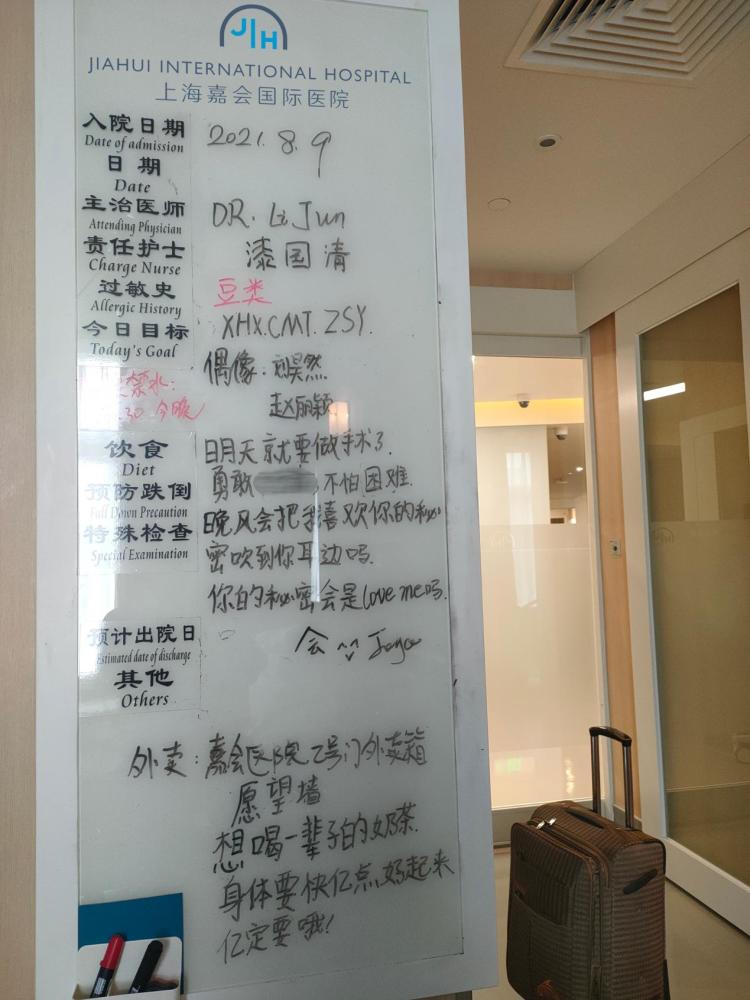 JIH
JIAHUI INTERNATIONAL HOSPITAL
上海嘉会国际医院
入院日期
Date of admission
2021.8.9
日期
Date
主治医师
Attending Physician
DR. Li Jun
责任护士
Charge Nurse
漆国清
过敏史
Allergic History
豆类
今日目标
Today's Goal
XHX.CMT.ZSY.
偶像.刘昊然
赵丽颖
禁水:
30 今晚
饮食
Diet
明天就要做手术了.
预防跌倒
Fall Down Precaution
勇敢 不怕困难.
特殊检查
Special Examination
晚风会把我喜欢你的秘
密吹到你耳边吗.
你的秘密会是love me吗.
预计出院日
Estimated date of discharge
会 Joyce
其他
Others
外卖:嘉会医院2号门外卖箱
愿望墙
想喝一辈子的奶茶.
身体要快亿点好起来
亿定要哦!